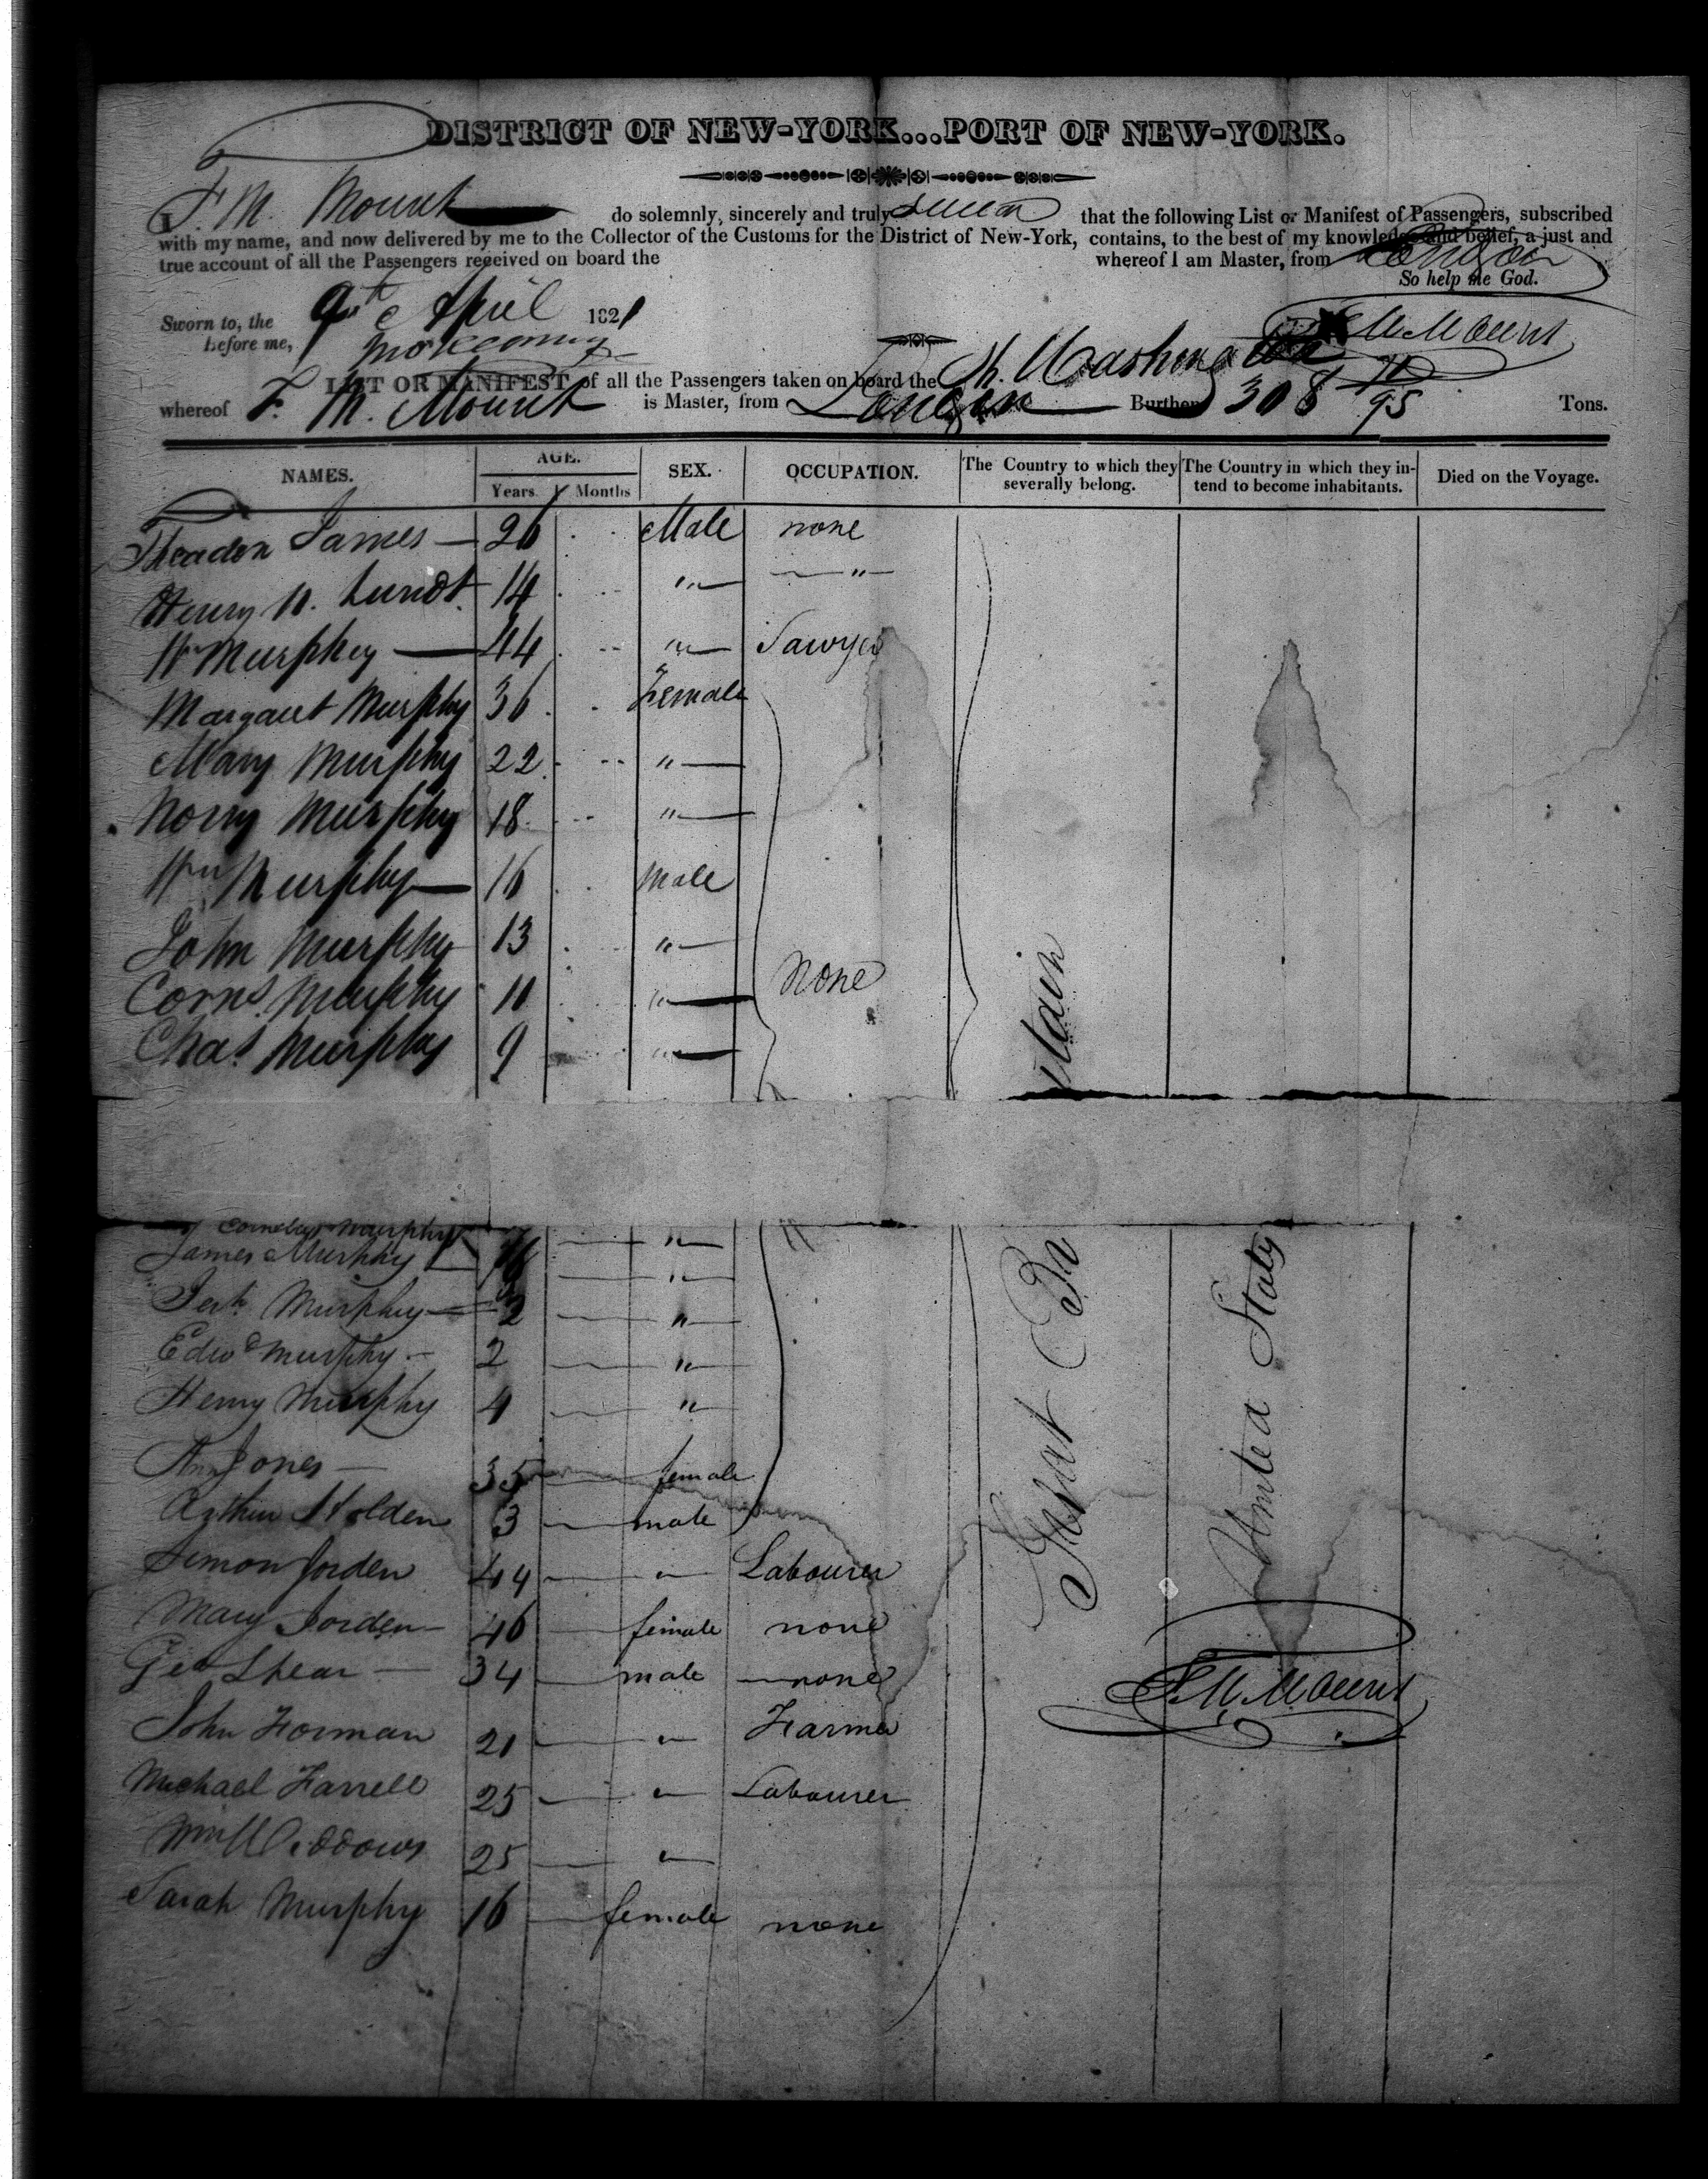 DISTRICT OF NEW-YORK...PORT OF NEW-YORK.
I F. M. Mount do solemnly, sincerely and truly swear that the following List or Manifest of Passengers, subscribed
with my name, and now delivered by me to the Collector of the Customs for the District of New-York, contains, to the best of my knowledge and belief, a just and
true account of all the Passengers received on board the whereof I am Master, from London
So help me God.
Sworn to, the 9th April 1821
before me,
F M Mount
LIST OR MANIFEST of all the Passengers taken on board the Sh. Washington
whereof F. M. Mount is Master, from London Burthen 308 71/95 Tons.
NAMES. AGE. SEX. OCCUPATION. The Country to which they severally belong. The Country in which they intend to become inhabitants. Died on the Voyage.
Years Months
James — 26 Male none
Henry N. Lundt 14 "— —"—
Wm Murphy — 44 "— Sawyer
Margaret Murphy 36 Female
Mary Murphy 22 "—
Norry Murphy 18 "—
Wm Murphy — 16 Male
John Murphy 13 "—
Corns. Murphy 11 "— None
Chas. Murphy 9 "—
Cornelius Murphy "—
James Murphy "—
Murphy — 2 "
Edwd Murphy — 2 "
Henry Murphy 4 "
Ann Jones — 35 female
Arthur Holden 3 male
Simon Jorden 44 " Labourer
Mary Jorden — 46 female none
Geo Shear — 34 male none
John Forman 21 " Farmer
Michael Farrell 25 " Labourer
Wm 25 "
Sarah Murphy 16 female none
Great Britain
United States
F. M. Mount